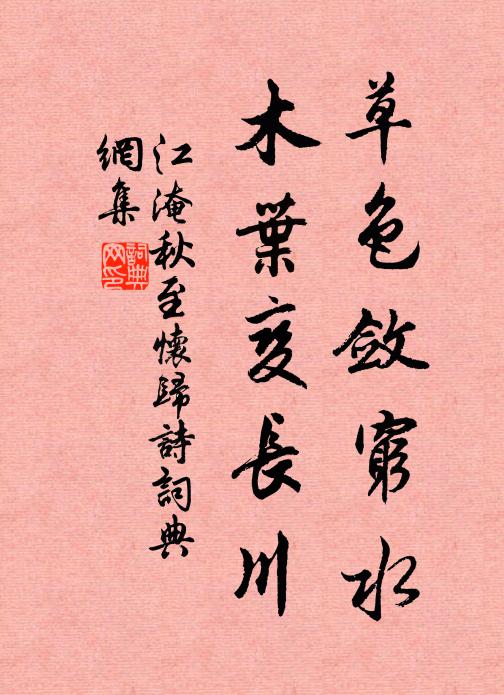 草色斂窮水
木葉变長川
江淹秋至懷歸詩詞典
網集
詞典
网印